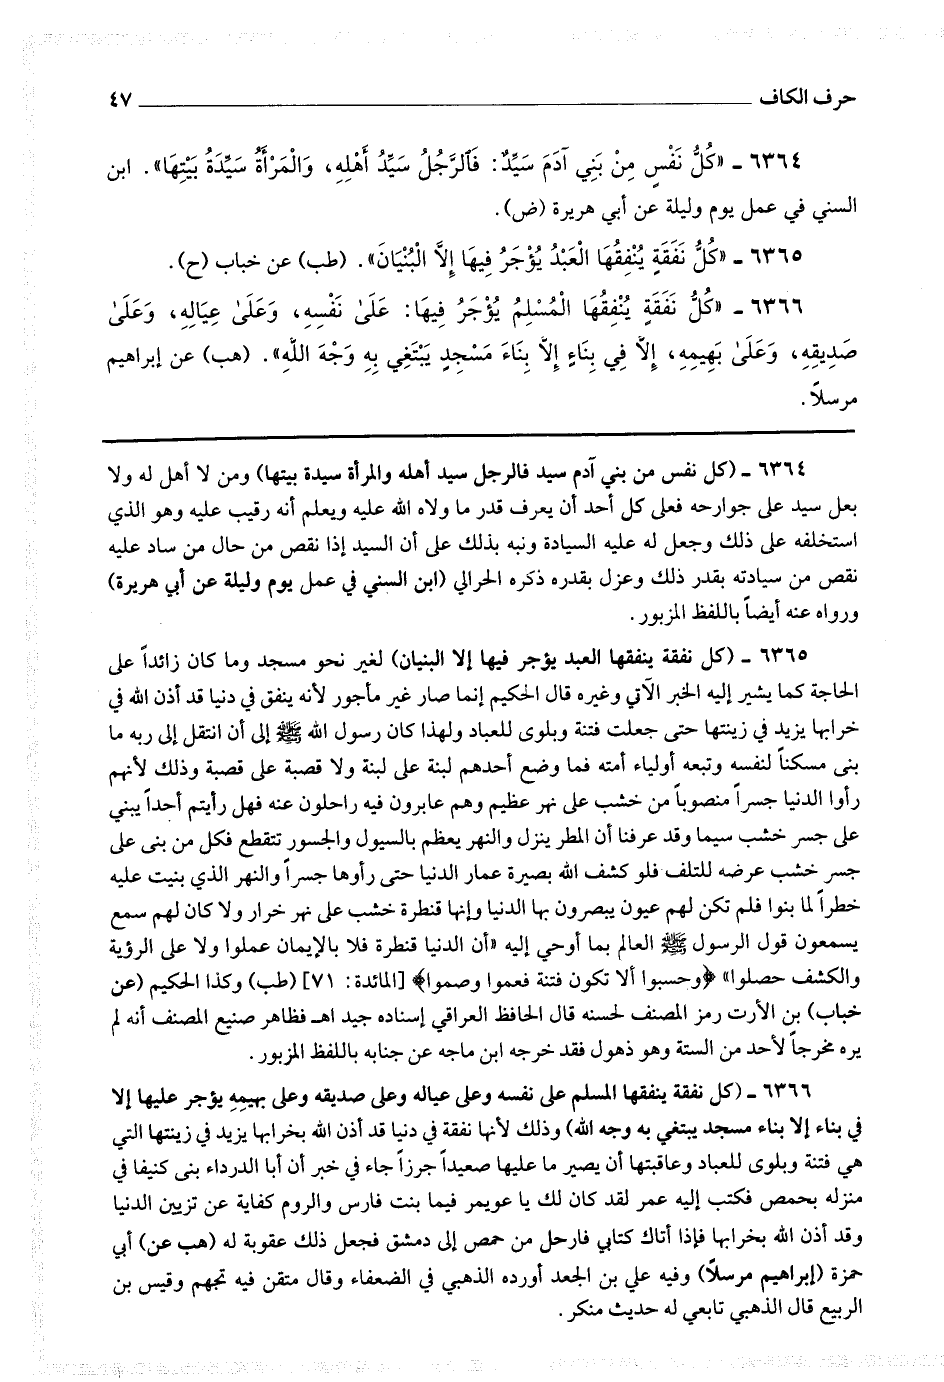 حرف الكاف ٤٧
٦٣٦٤ ـ «كُلُّ نَفْسٍ مِنْ بَنِي آدَمَ سَيِّدٌ: فَالرَّجُلُ سَيِّدُ أَهْلِهِ، وَالْمَرْأَةُ سَيِّدَةُ بَيْتِهَا». ابن
السني في عمل يوم وليلة عن أبي هريرة (ض).
٦٣٦٥ ـ «كُلُّ نَفَقَةٍ يُنْفِقُهَا الْعَبْدُ يُؤْجَرُ فِيهَا إِلاَّ الْبُنْيَانَ». (طب) عن خباب (ح).
٦٣٦٦ ـ «كُلُّ نَفَقَةٍ يُنْفِقُهَا الْمُسْلِمُ يُؤْجَرُ فِيهَا: عَلَىٰ نَفْسِهِ، وَعَلَىٰ عِيَالِهِ، وَعَلَىٰ
صَدِيقِهِ، وَعَلَىٰ بَهِيمِهِ، إِلاَّ فِي بِنَاءٍ إِلاَّ بِنَاءَ مَسْجِدٍ يَبْتَغِي بِهِ وَجْهَ اللَّهِ». (هب) عن إبراهيم
مرسلاً.
٦٣٦٤ ـ (كل نفس من بني آدم سيد فالرجل سيد أهله والمرأة سيدة بيتها) ومن لا أهل له ولا
بعل سيد على جوارحه فعلى كل أحد أن يعرف قدر ما ولاه الله عليه ويعلم أنه رقيب عليه وهو الذي
استخلفه على ذلك وجعل له عليه السيادة ونبه بذلك على أن السيد إذا نقص من حال من ساد عليه
نقص من سيادته بقدر ذلك وعزل بقدره ذكره الحرالي (ابن السني في عمل يوم وليلة عن أبي هريرة)
ورواه عنه أيضاً باللفظ المزبور.
٦٣٦٥ ـ (كل نفقة ينفقها العبد يؤجر فيها إلا البنيان) لغير نحو مسجد وما كان زائداً على
الحاجة كما يشير إليه الخبر الآتي وغيره قال الحكيم إنما صار غير مأجور لأنه ينفق في دنيا قد أذن الله في
خرابها يزيد في زينتها حتى جعلت فتنة وبلوى للعباد ولهذا كان رسول الله ﷺ إلى أن انتقل إلى ربه ما
بنى مسكناً لنفسه وتبعه أولياء أمته فما وضع أحدهم لبنة على لبنة ولا قصبة على قصبة وذلك لأنهم
رأوا الدنيا جسراً منصوباً من خشب على نهر عظيم وهم عابرون فيه راحلون عنه فهل رأيتم أحداً يبني
على جسر خشب سيما وقد عرفنا أن المطر ينزل والنهر يعظم بالسيول والجسور تتقطع فكل من بنى على
جسر خشب عرضه للتلف فلو كشف الله بصيرة عمار الدنيا حتى رأوها جسراً والنهر الذي بنيت عليه
خطراً لما بنوا فلم تكن لهم عيون يبصرون بها الدنيا وإنها قنطرة خشب على نهر خرار ولا كان لهم سمع
يسمعون قول الرسول ﷺ العالم بما أوحي إليه «أن الدنيا قنطرة فلا بالإيمان عملوا ولا على الرؤية
والكشف حصلوا» ﴿وحسبوا ألا تكون فتنة فعموا وصموا﴾ [المائدة: ٧١] (طب) وكذا الحكيم (عن
خباب) بن الأرت رمز المصنف لحسنه قال الحافظ العراقي إسناده جيد اهـ فظاهر صنيع المصنف أنه لم
يره مخرجاً لأحد من الستة وهو ذهول فقد خرجه ابن ماجه عن جنابه باللفظ المزبور.
٦٣٦٦ ـ (كل نفقة ينفقها المسلم على نفسه وعلى عياله وعلى صديقه وعلى بهيمِهِ يؤجر عليها إلا
في بناء إلا بناء مسجد يبتغي به وجه الله) وذلك لأنها نفقة في دنيا قد أذن الله بخرابها يزيد في زينتها التي
هي فتنة وبلوى للعباد وعاقبتها أن يصير ما عليها صعيداً جرزاً جاء في خبر أن أبا الدرداء بنى كنيفا في
منزله بحمص فكتب إليه عمر لقد كان لك يا عويمر فيما بنت فارس والروم كفاية عن تزيين الدنيا
وقد أذن الله بخرابها فإذا أتاك كتابي فارحل من حمص إلى دمشق فجعل ذلك عقوبة له (هب عن) أبي
حمزة (إبراهيم مرسلاً) وفيه علي بن الجعد أورده الذهبي في الضعفاء وقال متقن فيه تجهم وقيس بن
الربيع قال الذهبي تابعي له حديث منكر.